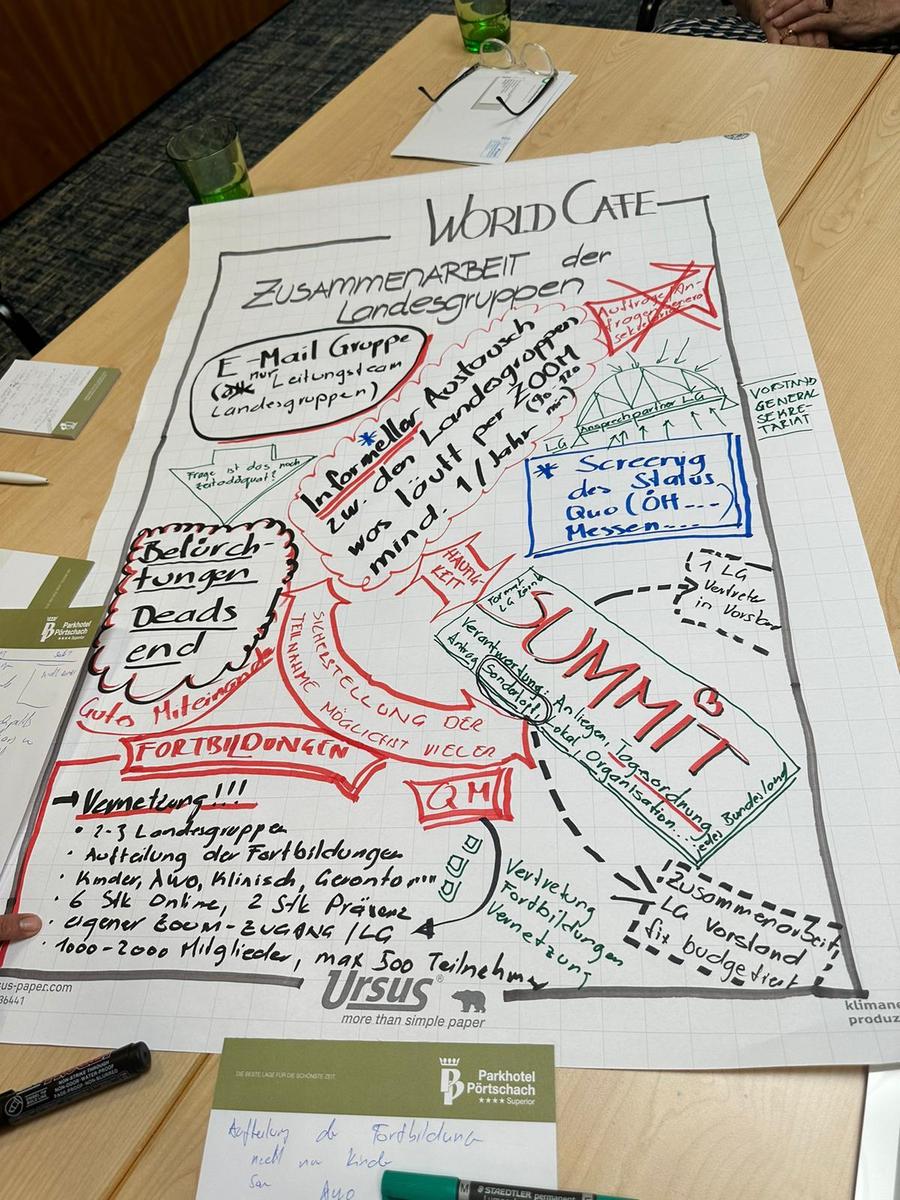 WORLD CAFE
ZUSAMMENARBEIT der
Landesgruppen
E-Mail Gruppe
(nur Leitungsteam
Landesgruppen)
Informeller Austausch
zw. den Landesgruppen
was läuft per ZOOM
mind. 1/Jahr (90-120
min)
Ansprechpartner LG
LG
VORSTAND
GENERAL
SEKRE-
TARIAT
Frage ist das noch
* Screenyg
des Status
Quo (ÖH---)
Messen----
Befürch-
tungen
Deads
end
HÄUFIG-
KEIT
1 LG
Vertreter
in Vorstan
SUMMIT
Verantwortung: Anliegen, Tagesordnung
Antrag Sondertopf, Lokal Organisation...
jedes Bundesland
SICHERSTELLUNG DER
TEILNAHME MÖGLICHST VIELER
Gutes Miteinander
FORTBILDUNGEN
QM
→ Vernetzung!!!
• 2-3 Landesgruppen
• Aufteilung der Fortbildungen
• Kinder, AWO, Klinisch, Geronto
• 6 Stk Online, 2 Stk Präsenz
• eigener ZOOM-ZUGANG/LG
• 1000-2000 Mitglieder, max 500 Teilnehm
Vertretung
Fortbildungen
Vernetzung
Zusammenarbeit
LG vorstand
fix budgetiert
us-paper.com
36441
Ursus®
more than simple paper
klimane
produz
Parkhotel
Pörtschach
Superior
DIE BESTE LAGE FÜR DIE SCHÖNSTE ZEIT.
Parkhotel
Pörtschach
★★★★ Superior
Aufteilung der Fortbildung
nicht nur Kinder
AWO
STAEDTLER permanent